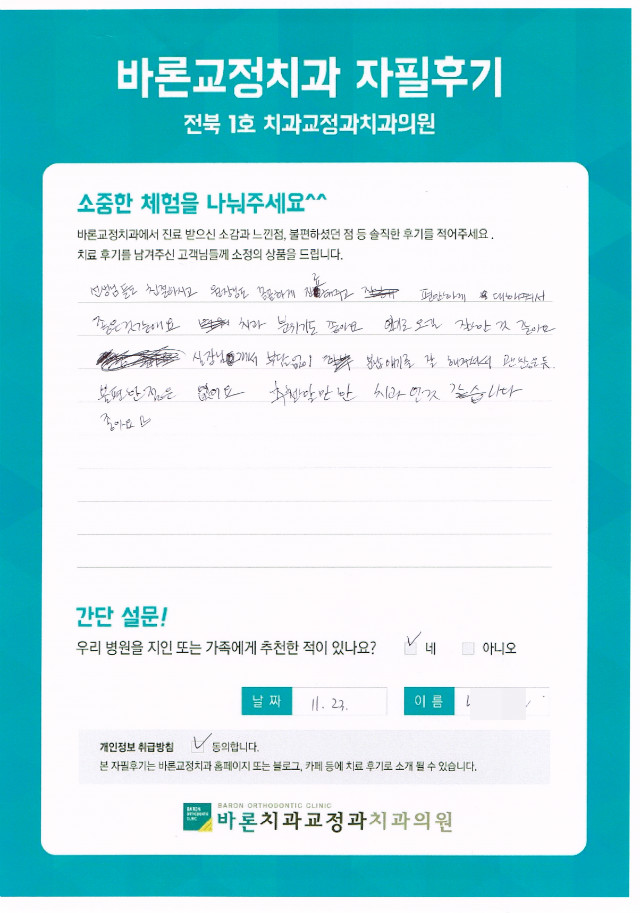 바론교정치과 자필후기
전북 1호 치과교정과치과의원
소중한 체험을 나눠주세요^^
바론교정치과에서 진료 받으신 소감과 느낀점, 불편하셨던 점 등 솔직한 후기를 적어주세요.
치료 후기를 남겨주신 고객님들께 소정의 상품을 드립니다.
선생님들도 친절하시고 원장님도 꼼꼼하게 진료해주고 편안하게 대해주셔서
좋은것같아요 치과 분위기도 좋아요 오길 잘한 것 같아요
실장님께서 부담없이 잘 해주셔서
불편한 점은 없어요 추천할만 한 치과 인것 같습니다
좋아요
간단 설문!
우리 병원을 지인 또는 가족에게 추천한 적이 있나요? 네 아니오
날짜 11. 23. 이름
개인정보 취급방침 동의합니다.
본 자필후기는 바론교정치과 홈페이지 또는 블로그, 카페 등에 치료 후기로 소개 될 수 있습니다.
BARON ORTHODONTIC CLINIC
바론치과교정과치과의원